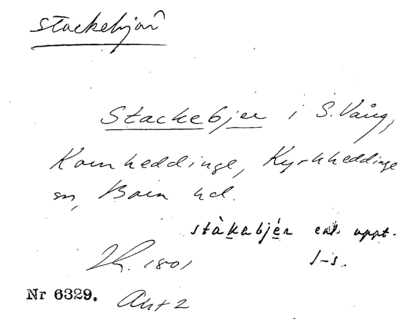 Stackebjär
Stackebjer i S. Vång,
Kornheddinge, Kyrkheddinge
sn, Bara hd.
stàkabjér enl. uppt.
1801
J-s.
Nr 6329. Akt 2